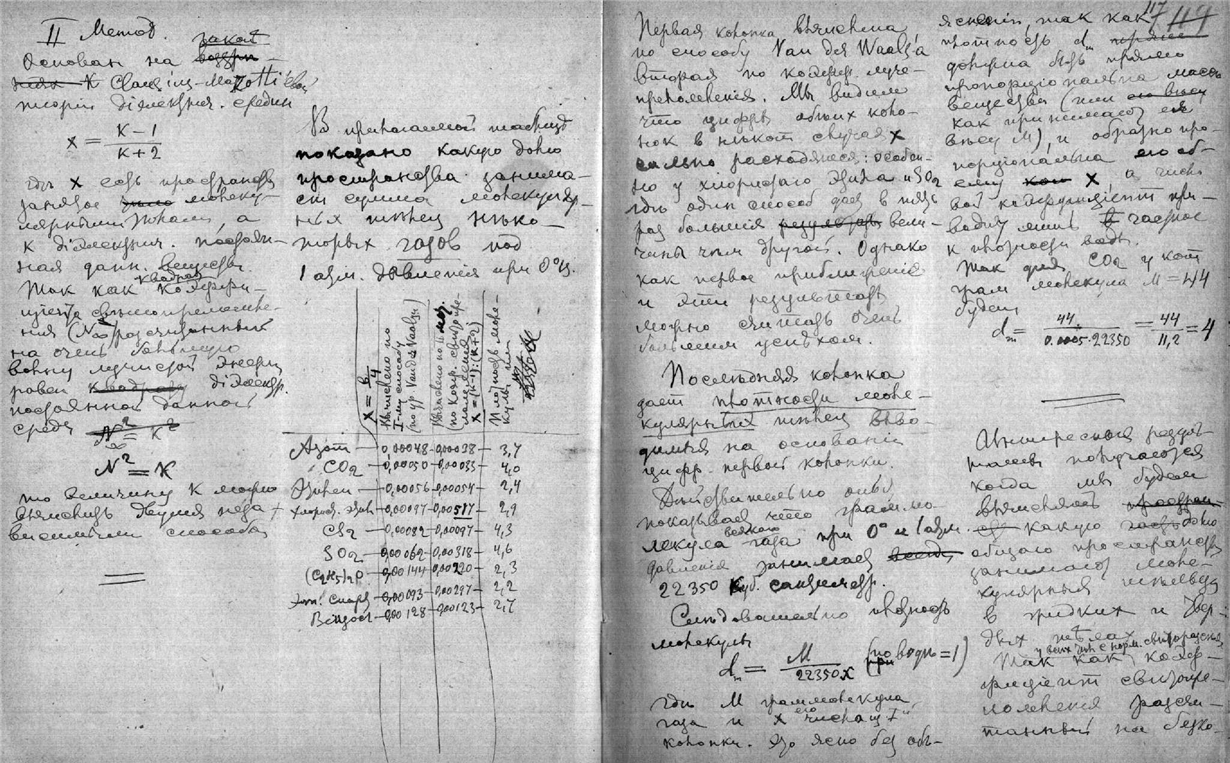 II Метод.
Основан на
Clausius-Mazotti'евой
теории діэлектрич. среды
x = K-1 / K+2
гдѣ x есть пространство
занятое молеку-
лярными тѣлами, а
K діэлектрич. постоян-
ная данн. вещества.
Так как квадрат коэффи-
циента свѣтопреломле-
ния (N) расчитанный
на очень большую
волну лучистой энергіи
равен діэлектр.
постоянной данной
среды
N² = K
то величину K можно
вычислить двумя неза-
висимыми способами
В прилагаемой таблицѣ
показано какую долю
пространства занима-
ет сумма молекуляр-
ных тѣлец нѣко-
торых газов под
1 атм. давленія при 0°Ц.
x = b/4
Вычислено по
I-му способу
(по ур. Van der Waals'a)
Вычислено по II мет.
по коэф. свѣтопре-
ломленія
x = (K-1):(K+2)
Плотность моле-
кул
Азот — 0,00048 — 0,00038 — 3,7
CO₂ — 0,00050 — 0,00033 — 4,0
Этилен — 0,00056 — 0,00054 — 2,4
Хлорист. этил — 0,00097 — 0,00517 — 2,9
CS₂ — 0,00082 — 0,00097 — 4,3
SO₂ — 0,00062 — 0,00318 — 4,6
(C₂H₅)₂O — 0,00144 — 0,00220 — 2,3
Этил. Спирт — 0,00093 — 0,00297 — 2,2
Бензол — 0,00128 — 0,00123 — 2,7
Первая колонка вычислена
по способу Van der Waals'a
вторая по коэффиц. луче-
преломленія. Мы видим
что цифры обѣих коло-
нок в нѣкот. случаях
сильно расходятся: особен-
но у хлористаго этила и SO₂
гдѣ один способ дает в пять
раз большія вели-
чины чѣм другой. Однако
как первое приближеніе
и эти результаты
можно считать очень
большим успѣхом.
Послѣдняя колонка
дает плотности моле-
кулярных тѣлец выво-
димыя на основаніи
цифр первой колонки.
Дѣйствительно опыт
показывает что грам.мо-
лекула всякого газа при 0° и 1 атм.
давленія занимает
22350 куб. сантиметр.
Слѣдовательно плотность
молекулы
dₘ = M / 22350x (по водѣ = 1)
гдѣ M граммолекула
газа и x его число из 1й
колонки. Это ясно без объ-
117
ясненій, так как
плотность dₘ
должна быть прямо
пропорціональна массѣ
вещества (или
как принимают его
вѣсу M), и обратно про-
порціональна его об-
ему x, а число-
вой коэффиціент при-
водит лишь в частное
к плотности воды.
Так для CO₂ у кот.
грам молекула M = 44
будет
dₘ = 44 / 0.0005·22350 = 44 / 11,2 = 4
Интересный резуль-
тат получается
когда мы будем
вычислять
какую долю
общаго пространства
занимают моле-
кулярныя тѣльца
в жидких и твер-
дых тѣлах
Так как коэф-
фиціент свѣтопре-
ломленія разсчи-
танный на безко-